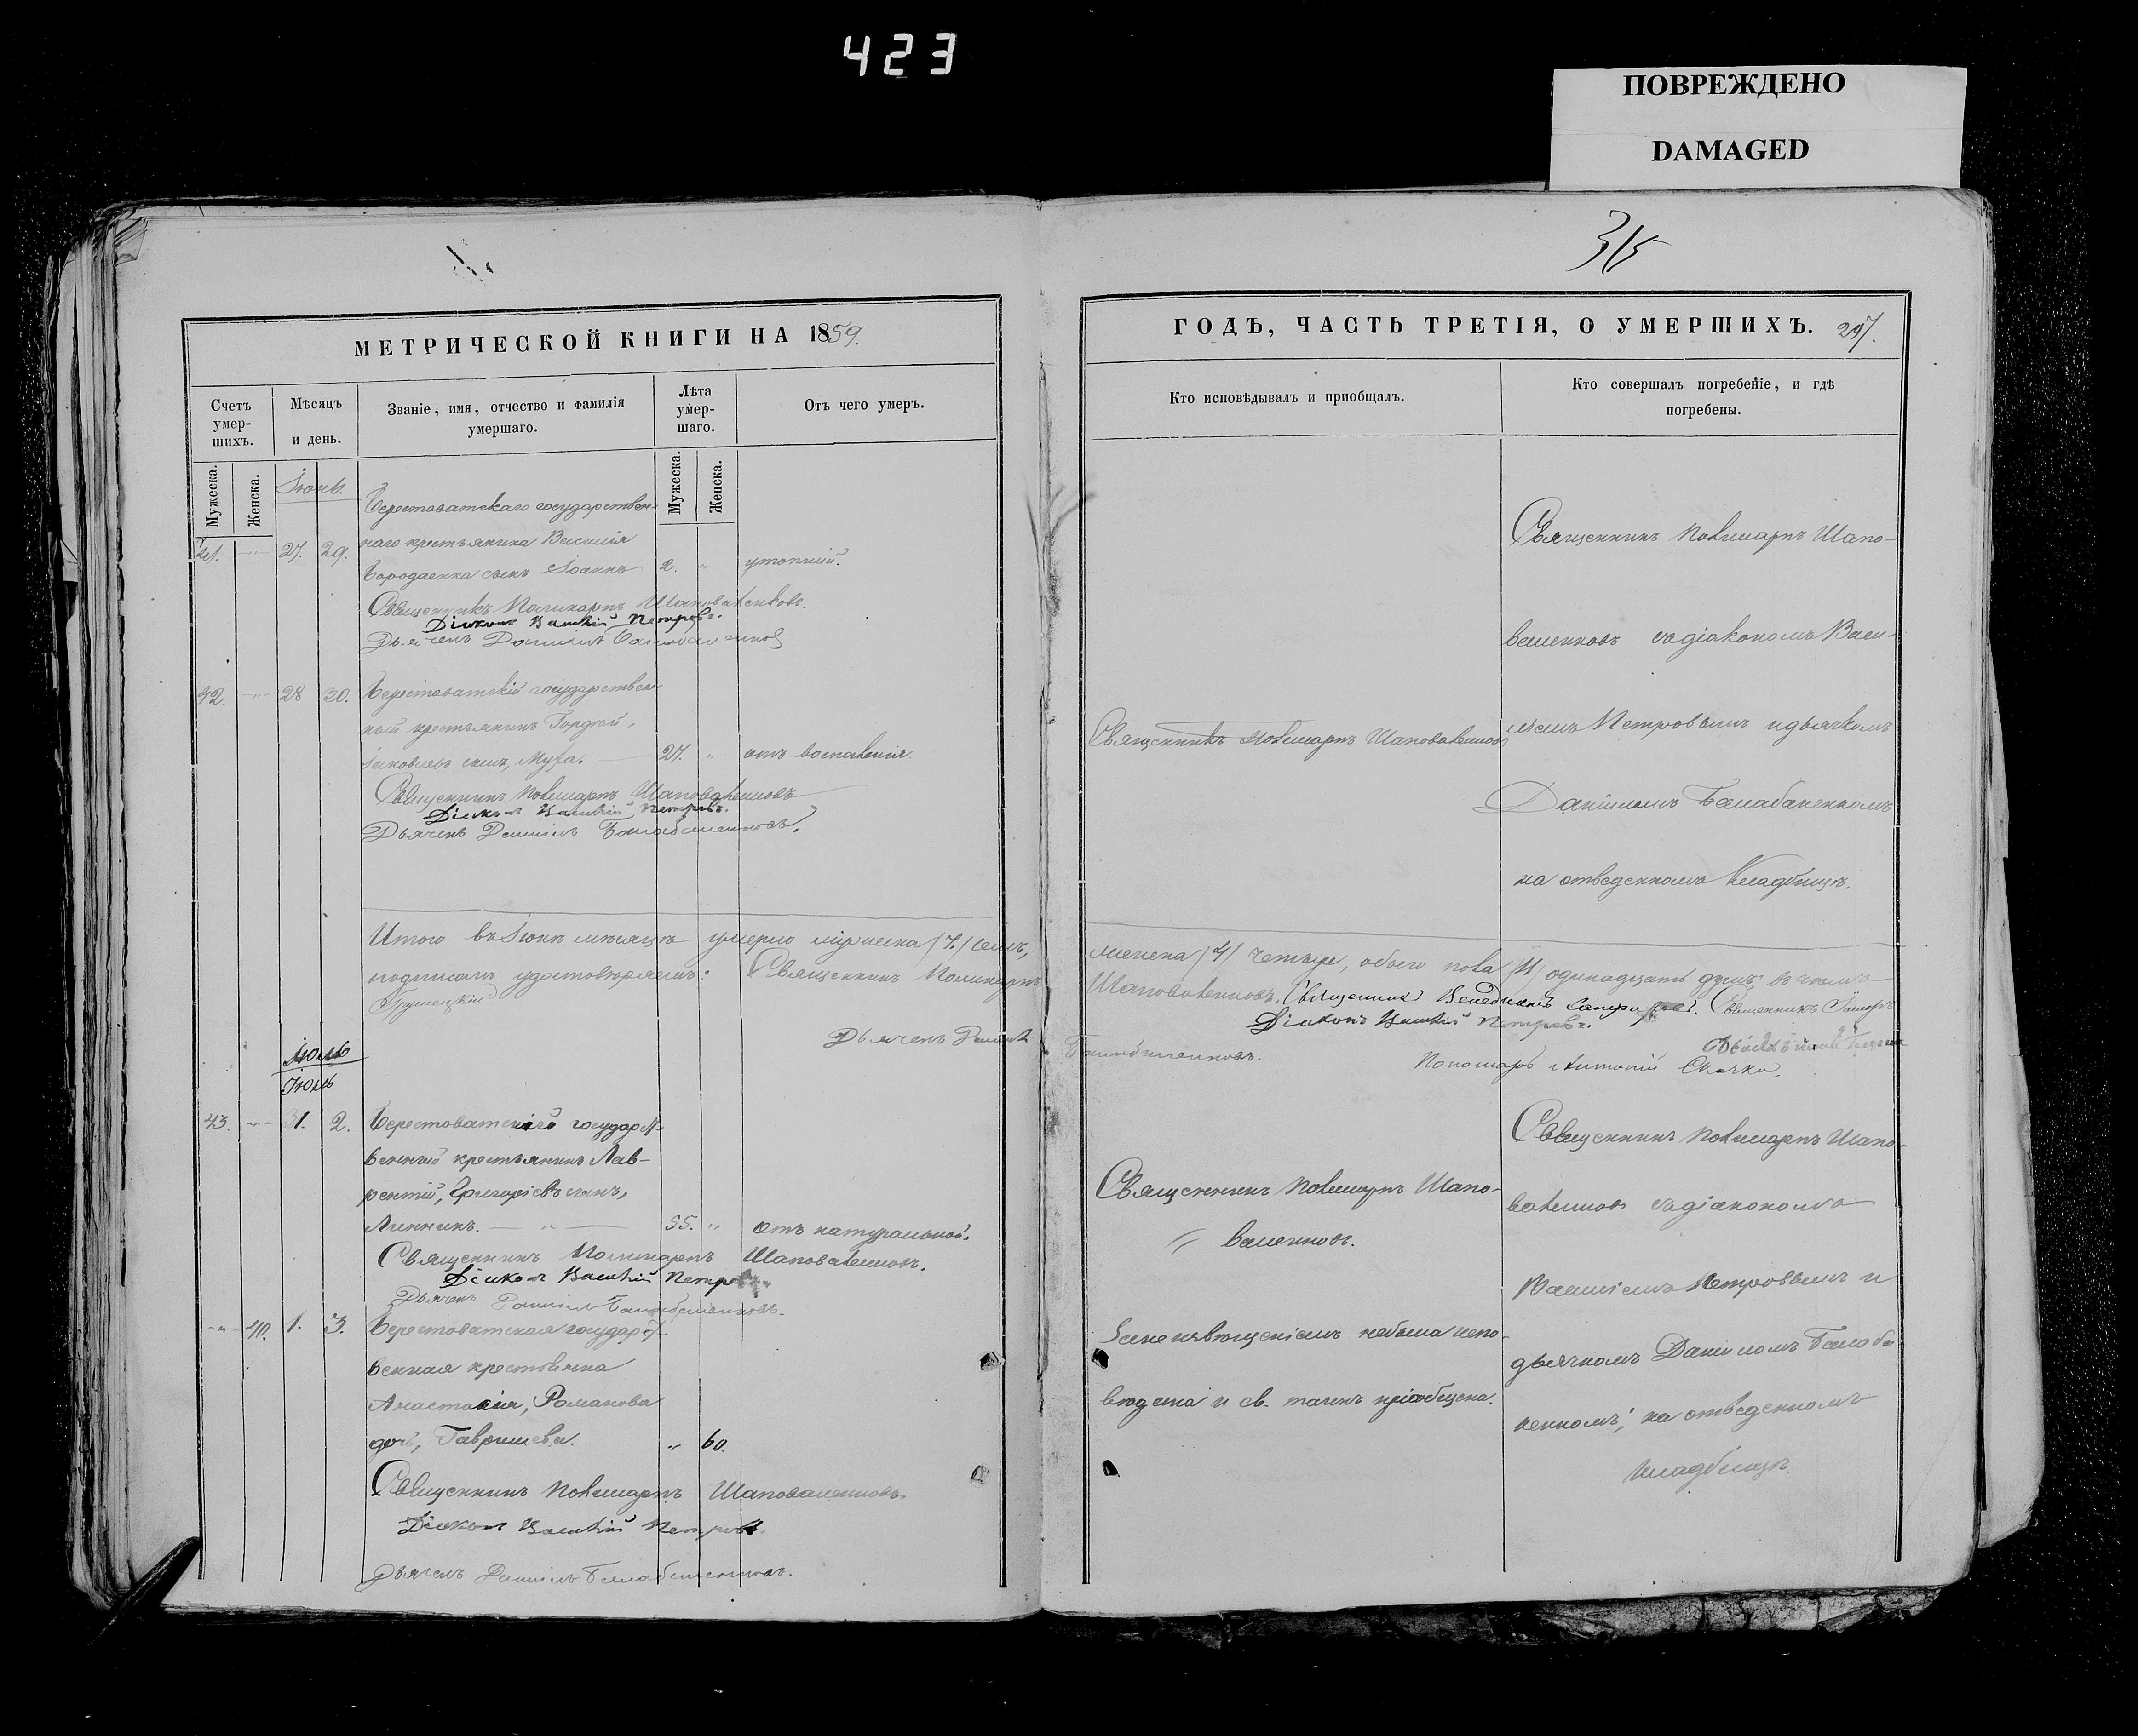 423
ПОВРЕЖДЕНО
DAMAGED
315
МЕТРИЧЕСКОЙ КНИГИ НА 1859.
Счетъ умер-шихъ.
Мѣсяцъ и день.
Званіе, имя, отчество и фамилія умершаго.
Лѣта умер-шаго.
Отъ чего умеръ.
Мужеска.
Женска.
Мужеска.
Женска.
Іюнь.
Берестоватскаго государствен-
41. 27. 29. наго крестьянина Василія
Бородаенка сынъ Іоаннъ 2. утопшій.
Священникъ Поликарпъ Шаповаленковъ.
Діаконъ Василій Петровъ.
Дьячекъ Даніилъ Балабаненковъ
42. 28 30. Берестоватскій государствен-
ный крестьянинъ Гордѣй,
Іаковлевъ сынъ, Муха. 27. отъ воспаленія.
Священникъ Поликарпъ Шаповаленковъ
Діаконъ Василій Петровъ.
Дьячекъ Даніилъ Балабаненковъ.
Итого въ Іюнѣ мѣсяцѣ умерло мужеска (7.) семь,
подписомъ удостовѣряемъ: Священникъ Поликарпъ
Дьячекъ Даніилъ
Іюль
Іюль
43. 31. 2. Берестоватскій государст-
венный крестьянинъ Лав-
рентій, Григоріевъ сынъ,
Линникъ. 55. отъ натуральной.
Священникъ Поликарпъ Шаповаленковъ.
Діаконъ Василій Петровъ
Дьячекъ Даніилъ Балабаненковъ.
40. 1. 3. Берестоватская государст-
венная крестьянка
Анастасія, Романова
дочь, Гавришева. 60.
Священникъ Поликарпъ Шаповаленковъ.
Діаконъ Василій Петровъ.
Дьячекъ Даніилъ Балабаненковъ.
ГОДЪ, ЧАСТЬ ТРЕТІЯ, О УМЕРШИХЪ. 297.
Кто исповѣдывалъ и приобщалъ.
Кто совершалъ погребеніе, и гдѣ погребены.
Священникъ Поликарпъ Шапо-
валенковъ съ діакономъ Васи-
Священникъ Поликарпъ Шаповаленковъ
ліемъ Петровымъ и дьячкомъ
Даніиломъ Балабаненкомъ
на отведенномъ кладбищѣ.
женска (4) четыре, обоего пола (11) одинадцать душъ въ чемъ
Шаповаленковъ. Священникъ Священникъ
Діаконъ Василій Петровъ.
Балабаненковъ. Пономарь Антоній Скачко.
Священникъ Поликарпъ Шапо-
Священникъ Поликарпъ Шапо-
валенковъ съ діакономъ
валенковъ.
Василіемъ Петровымъ и
небыла испо-
дьячкомъ Даніиломъ Балаба-
вѣдена и св. таинъ пріобщена.
ненкомъ; на отведенномъ
кладбищѣ.